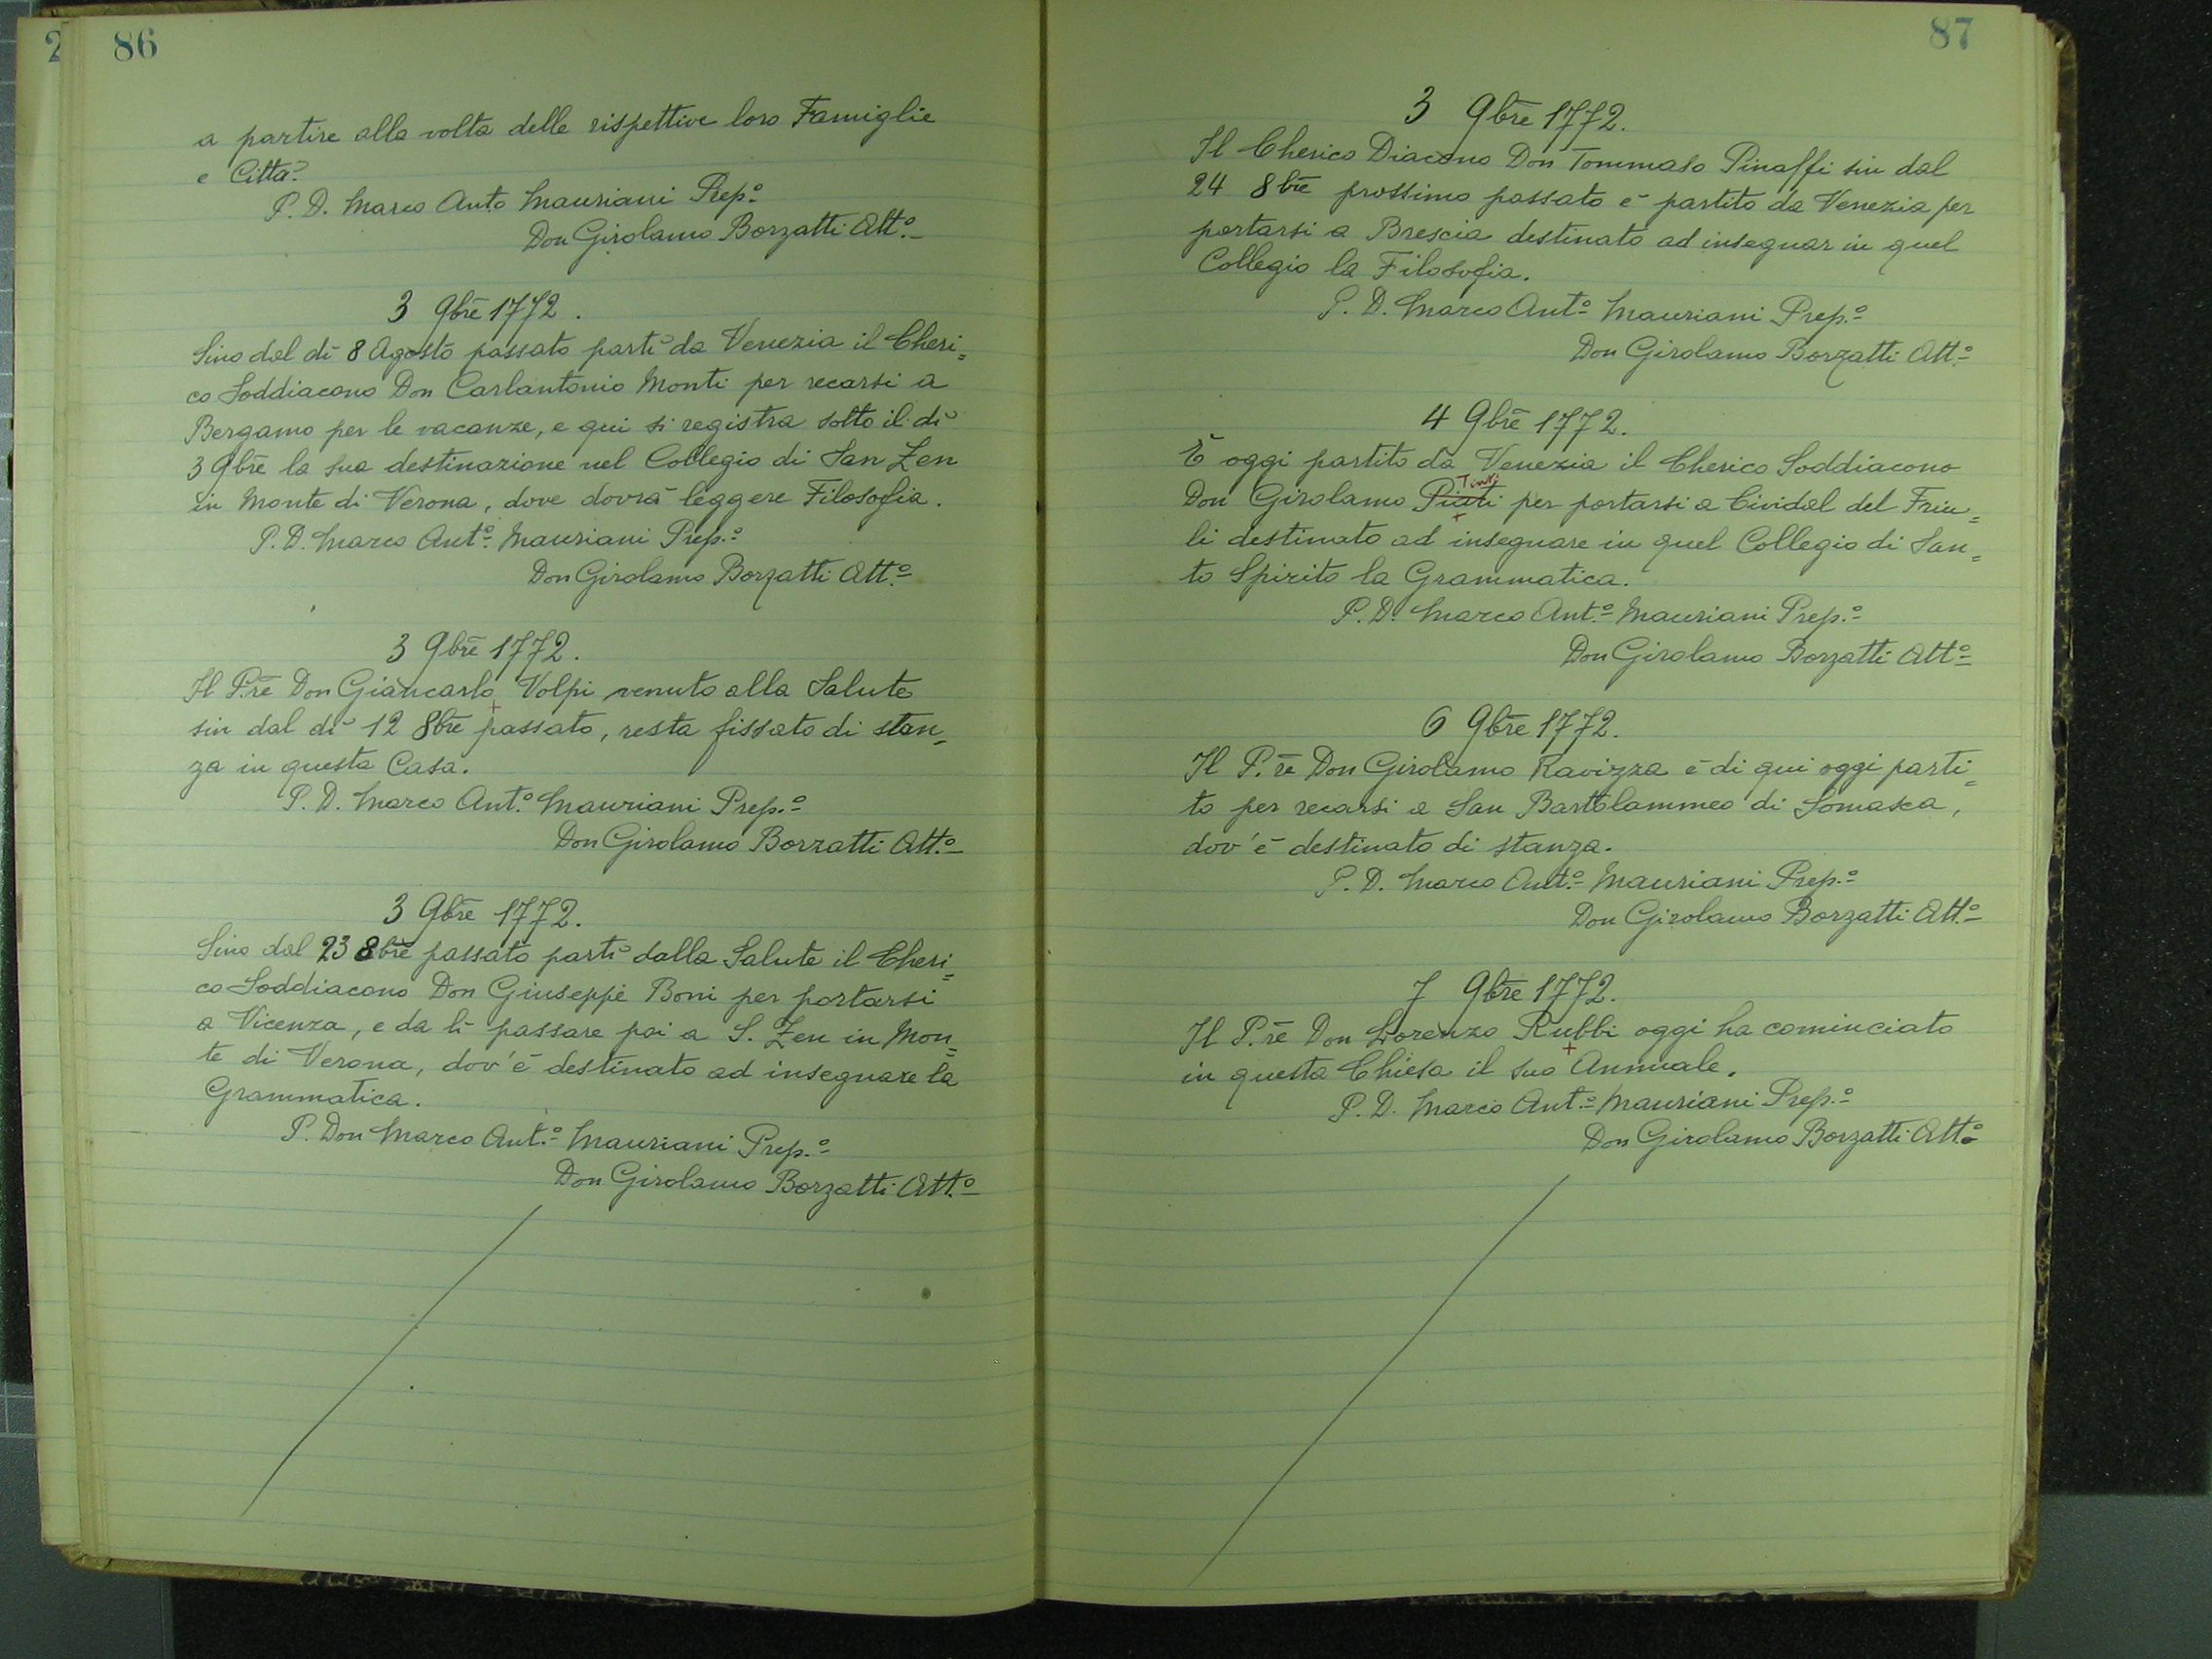 86
a partire alla volta delle rispettive loro Famiglie
e Città.
P. D. Marco Anto Mauriani Prep.º
Don Girolamo Borzatti Att.º
3 9bre 1772.
Sino dal dì 8 Agosto passato partì da Venezia il Cheri=
co Soddiacono Don Carlantonio Monti per recarsi a
Bergamo per le vacanze, e qui si registra sotto il dì
3 9bre la sua destinazione nel Collegio di San Zen
in Monte di Verona, dove dovrà leggere Filosofia.
P. D. Marco Ant.º Mauriani Prep.º
Don Girolamo Borzatti Att.º
3 9bre 1772.
Il P.re Don Giancarlo Volpi venuto alla Salute
sin dal dì 12 8bre passato, resta fissato di stan=
za in questa Casa.
P. D. Marco Ant.º Mauriani Prep.º
Don Girolamo Borzatti Att.º
3 9bre 1772.
Sino dal 23 8bre passato partì dalla Salute il Cheri=
co Soddiacono Don Giuseppe Boni per portarsi
a Vicenza, e da lì passare poi a S. Zen in Mon=
te di Verona, dov'è destinato ad insegnare la
Grammatica.
P. Don Marco Ant.º Mauriani Prep.º
Don Girolamo Borzatti Att.º
87
3 9bre 1772.
Il Cherico Diacono Don Tommaso Pinaffi sin dal
24 8bre prossimo passato è partito da Venezia per
portarsi a Brescia destinato ad insegnar in quel
Collegio la Filosofia.
P. D. Marco Ant.º Mauriani Prep.º
Don Girolamo Borzatti Att.º
4 9bre 1772.
È oggi partito da Venezia il Cherico Soddiacono
Tinti
Don Girolamo Piati per portarsi a Cividal del Friu=
li destinato ad insegnare in quel Collegio di San=
to Spirito la Grammatica.
P. D. Marco Ant.º Mauriani Prep.º
Don Girolamo Borzatti Att.º
6 9bre 1772.
Il P.re Don Girolamo Ravizza è di qui oggi parti=
to per recarsi a San Bartolammeo di Somasca,
dov'è destinato di stanza.
P. D. Marco Ant.º Mauriani Prep.º
Don Girolamo Borzatti Att.º
7 9bre 1772.
Il P.re Don Lorenzo Rubbi oggi ha cominciato
in questa Chiesa il suo Annuale.
P. D. Marco Ant.º Mauriani Prep.º
Don Girolamo Borzatti Att.º